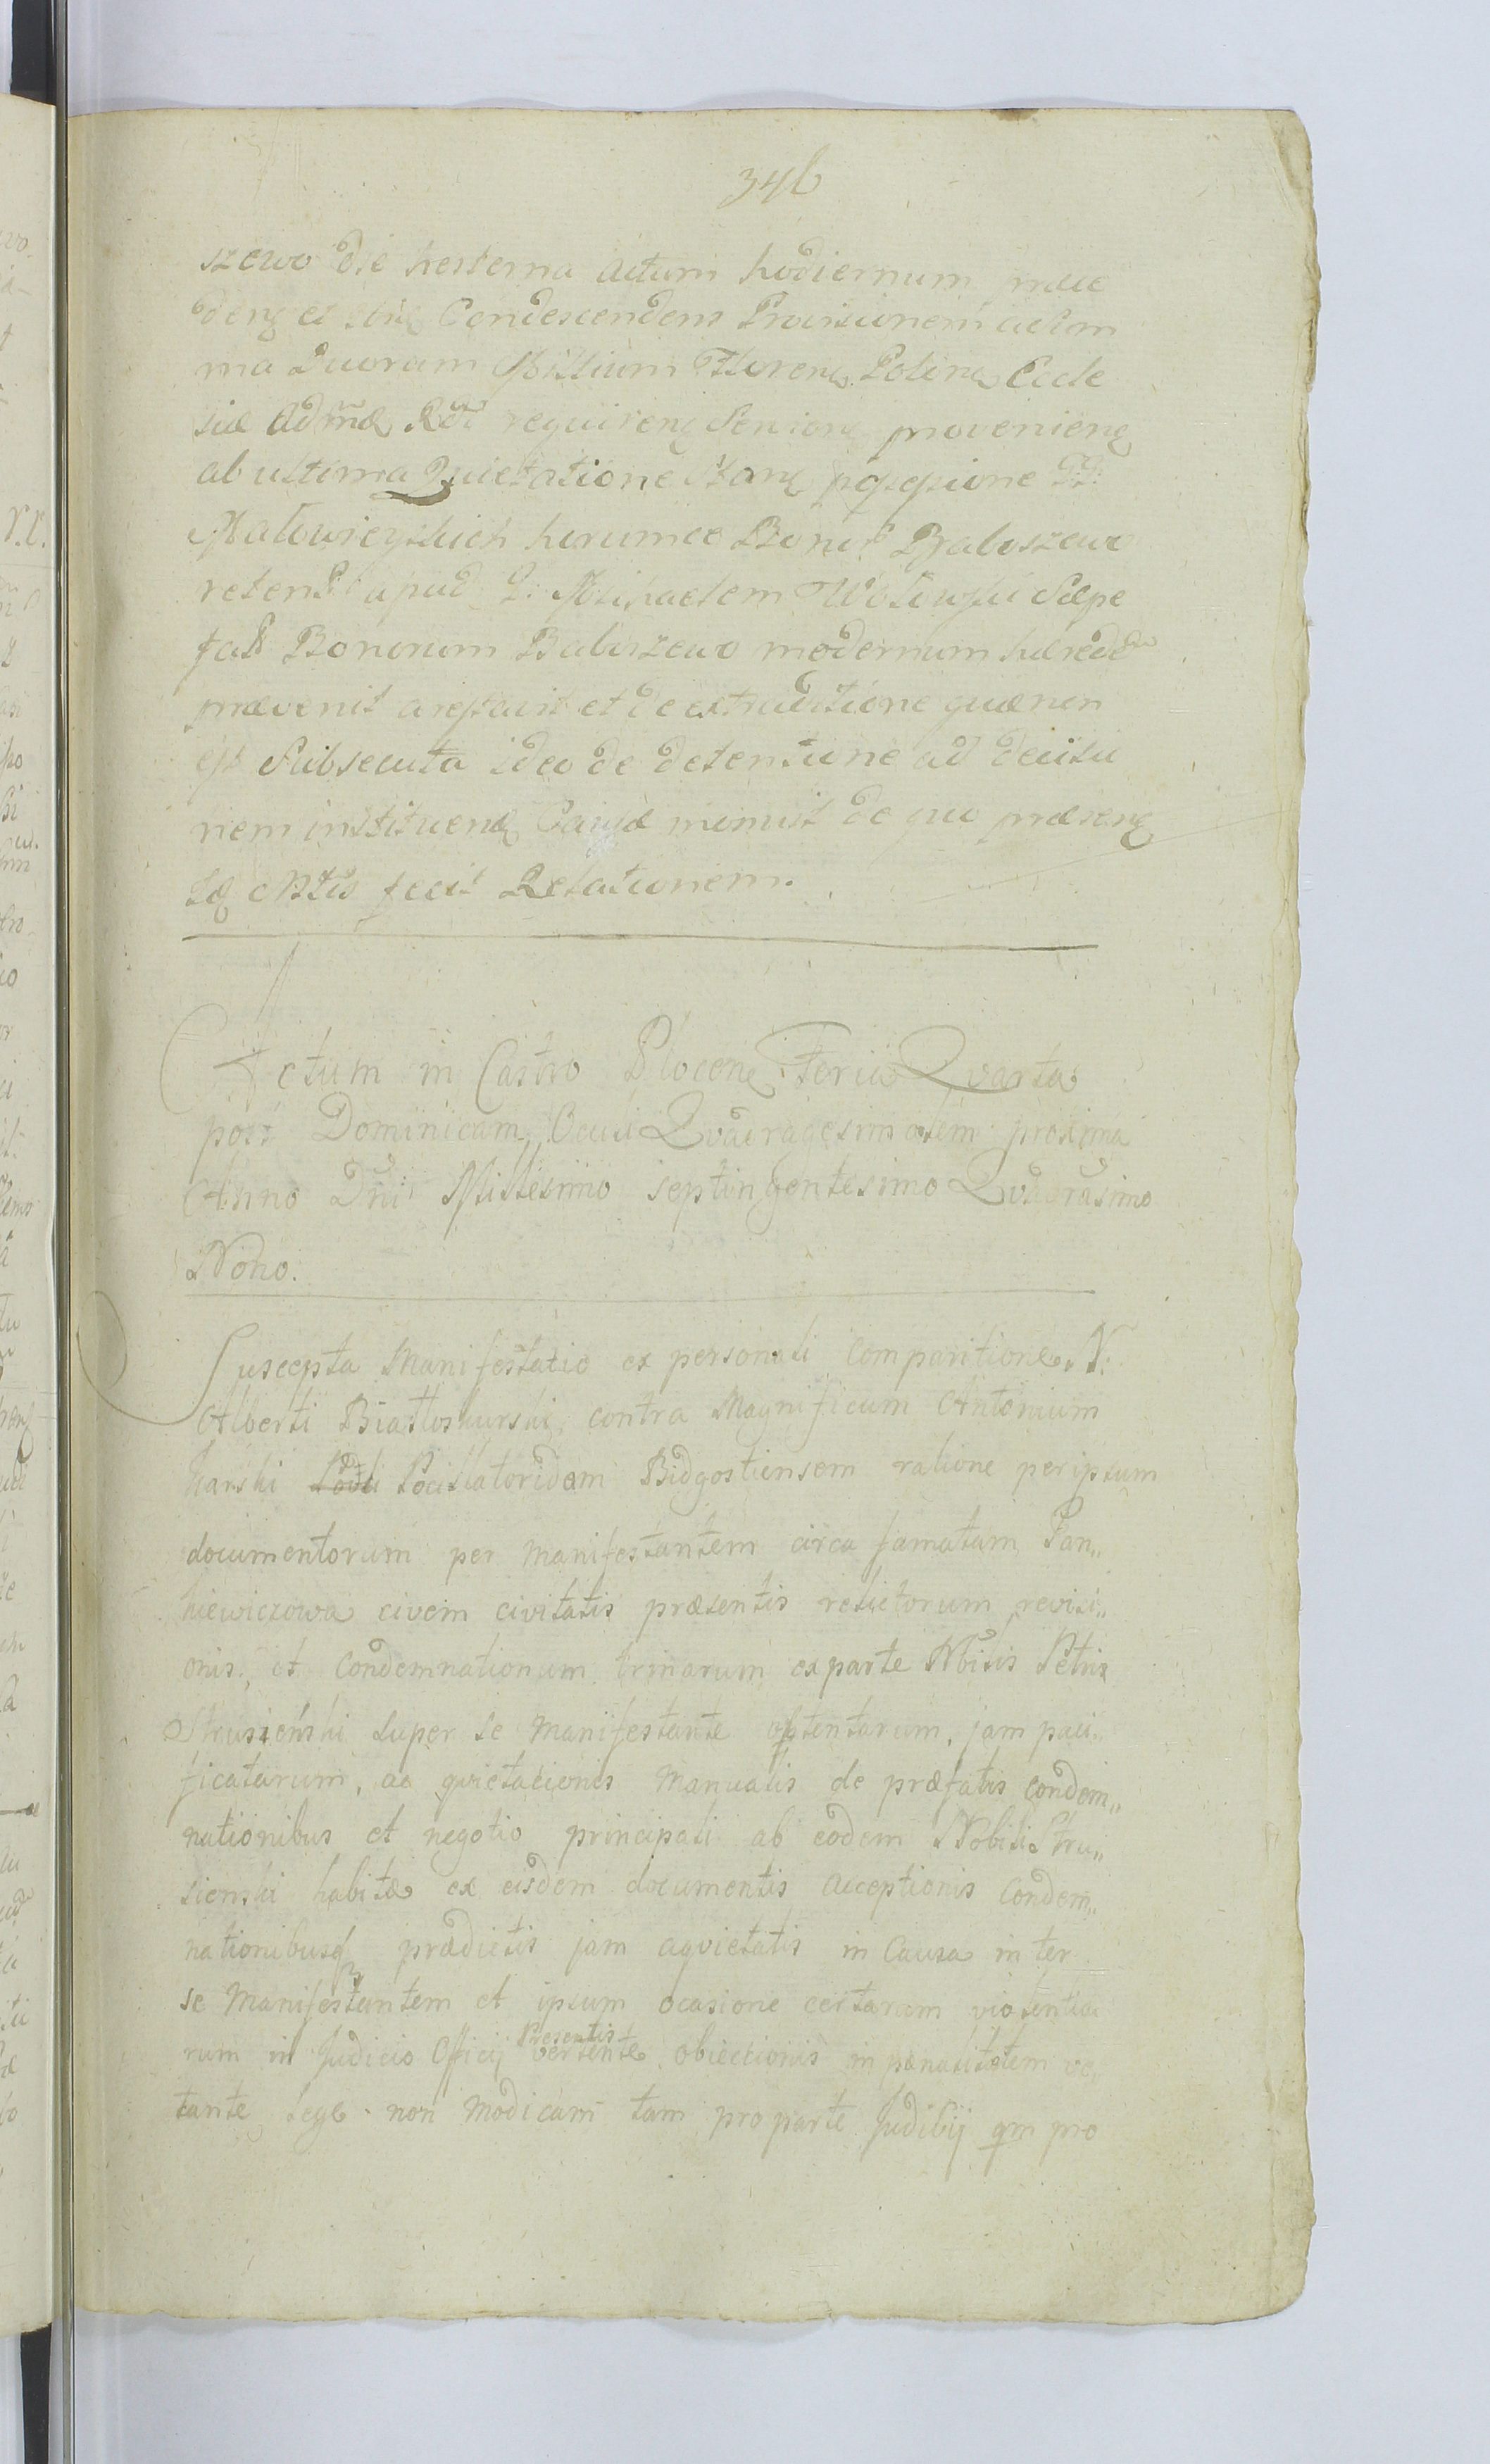 346
szewo die hesterna Actum hodiernum præce
den et Condescendens Provisionem a Sum
ma Duorum Millium Floren Polon Eccle
siæ Admd Rdi requiren Seniori provenien
ab ultima Quietatione Stan possessione GG:
Malowieyskich horumce Bonor Baboszewo
retent apud G: Michaelem Wołowski Sæpe
fat Bonorum Baboszewo modernum hærede
prævenit arestavit et de extraditione quæ non
est Subsecuta ideo de detentione ad decisi
onem instituend Causæ monuit de quo præsen
tq Ntis fecit Relationem.
Actum in Castro Plocen Feria Qvarta
post Dominicam Oculi Qvadragesimalem proxima
Anno Dni Millesimo septingentesimo Qvadrasimo
Nono.
Suscepta Manifestatio ex personali Comparitione N:
Alberti Białłoskurski contra Magnificum Antonium
Karski Pocillatoridem Bidgostiensem ratione per ipsum
documentorum per Manifestantem circa famatam Pan„
kiewiczowa civem civitatis præsentis relictorum revisi„
onis, et Condemnationum trinarum ex parte Nbilis Petri
Strusieński super se Manifestante obtentarum, jam paci„
ficatarum, ac qvietationis Manualis de præfatis Condem„
nationibus et negotio principali ab eodem Nobili Stru„
sienski habitæ ex eisdem documentis acceptionis Condem„
nationibusq prædictis jam aqvietatis in Causa inter
se Manifestantem et ipsum ocasione certarum violentia
rum in Judicio Officij Presentis vertente obiectionis in pænalitatem ve„
tante lege non Modicam tam pro parte Judicij qm pro